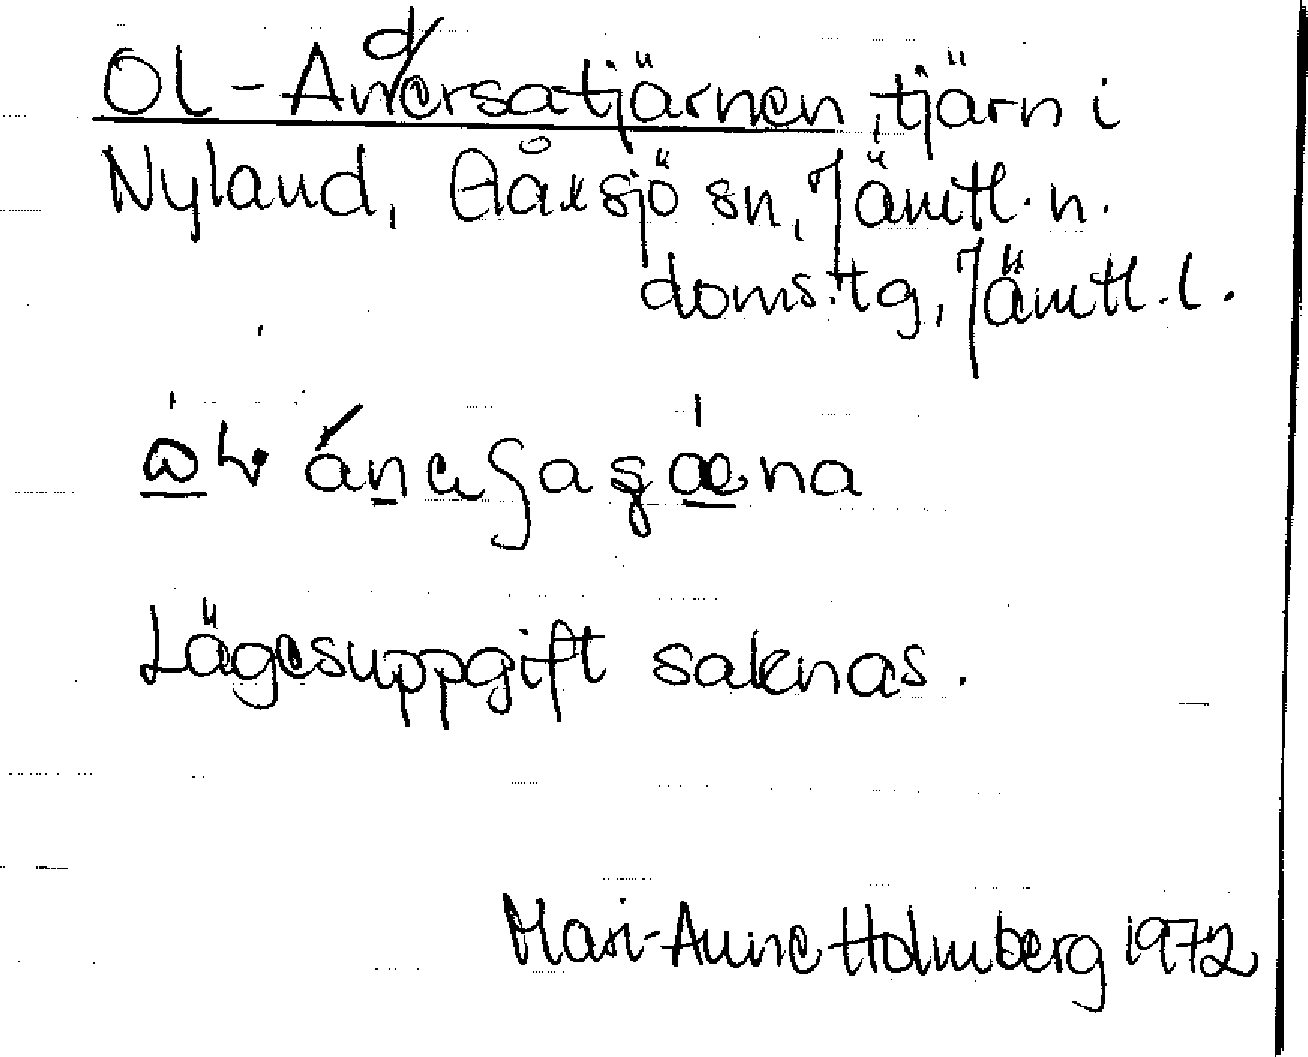 Ol-Andersatjärnen, tjärn i
Nyland, Gåxsjö sn, Jämtl. n.
doms.tg, Jämtl.l.
Lägesuppgift saknas.
Mari-Anne Holmberg 1972